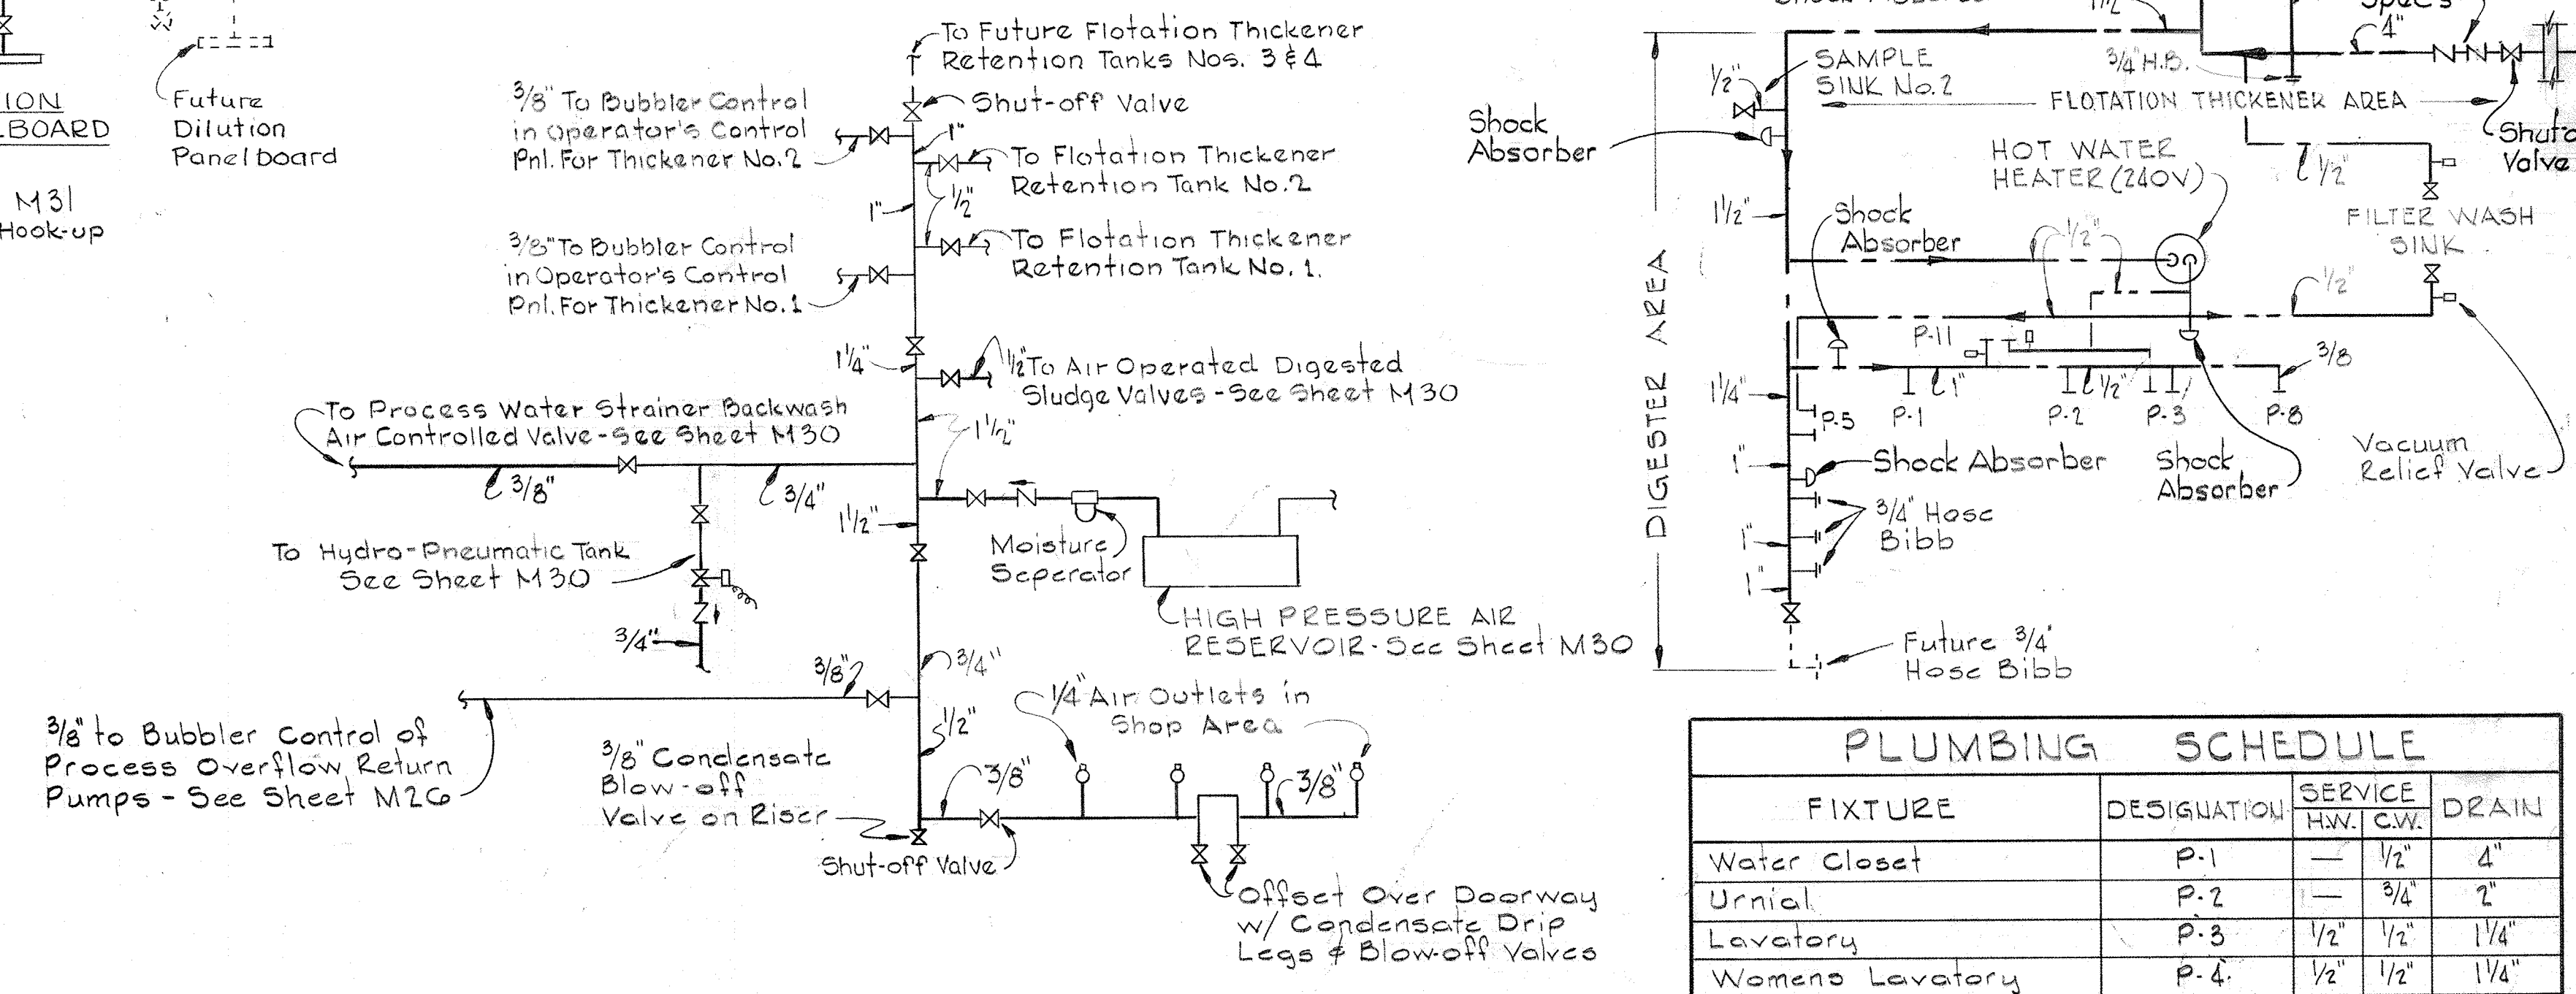 ION
LBOARD
M31
Hook-up
Future
Dilution
Panelboard
To Future Flotation Thickener
Retention Tanks Nos. 3 & 4
Shut-off Valve
3/8" To Bubbler Control
in Operator's Control
Pnl. For Thickener No.2
1"
To Flotation Thickener
Retention Tank No.2
1/2"
1"
3/8" To Bubbler Control
in Operator's Control
Pnl. For Thickener No.1
To Flotation Thickener
Retention Tank No. 1.
1 1/4"
1/2" To Air Operated Digested
Sludge Valves - See Sheet M30
To Process Water Strainer Backwash
Air Controlled Valve - See Sheet M30
1 1/2"
3/8"
3/4"
1 1/2"
To Hydro-Pneumatic Tank
See Sheet M30
Moisture
Seperator
HIGH PRESSURE AIR
RESERVOIR - See Sheet M30
3/4"
3/8"
3/4"
1/4" Air Outlets in
Shop Area
3/8" to Bubbler Control of
Process Overflow Return
Pumps - See Sheet M26
1/2"
3/8" Condensate
Blow-off
Valve on Riser
3/8"
3/8"
Shut-off Valve
Offset Over Doorway
w/ Condensate Drip
Legs & Blow-off Valves
1 1/2"
Spec's
4"
SAMPLE
SINK No.2
1/2"
3/4" H.B.
FLOTATION THICKENER AREA
Shock
Absorber
Valve
HOT WATER
HEATER (240V)
1/2"
1 1/2"
Shock
Absorber
1/2"
FILTER WASH
SINK
DIGESTER AREA
1/2"
P-11
3/8
1 1/4"
P-5
1"
1/2"
P-1
P-2
P-3
P-8
1"
Shock Absorber
Shock
Absorber
Vacuum
Relief Valve
3/4" Hose
Bibb
1"
1"
Future 3/4"
Hose Bibb
PLUMBING SCHEDULE
FIXTURE DESIGNATION SERVICE DRAIN
H.W. C.W.
Water Closet P-1 — 1/2" 4"
Urnial P-2 — 3/4" 2"
Lavatory P-3 1/2" 1/2" 1 1/4"
Womens Lavatory P-4 1/2" 1/2" 1 1/4"